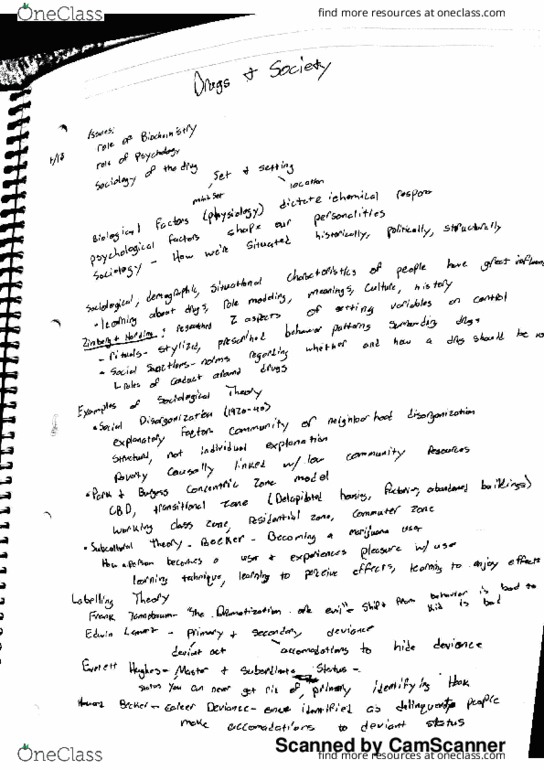 OneClass
find more resources at oneclass.com
Drugs + Society
Issues:
role of Biochemistry
role of Psychology
Sociology of the drug
Set + setting
mindset
location
Biological Factors (physiology) dictate chemical respon
psychological factors shape our personalities
Sociology - How we're situated historically, politically, structurally
Sociological, demographic, situational characteristics of people have great influen
• learning about drugs, role modeling, meanings, culture, history
Zinberg + Harding: researched 2 aspects of setting variables on control
- rituals - stylized, prescribed behavior patterns surrounding drugs
• Social Sanctions - norms regarding whether and how a drug should be
rules of conduct around drugs
Examples of Sociological Theory
• Social Disorganization (1920-40)
explanatory factor: community or neighborhood disorganization
structural, not individual explanation
Poverty causally linked w/ low community resources
• Park + Burgess Concentric Zone model
CBD, transitional zone (Delapidated housing, factories, abandoned buildings)
working class zone, residential zone, commuter zone
• Subcultural Theory - Becker - Becoming a marijuana user
How a person becomes a user + experiences pleasure w/ use
learning technique, learning to perceive effects, learning to enjoy effects
Labelling Theory
Frank Tannenbaum - "the Dramatization of evil" - shift from behavior is bad to
kid is bad
Edwin Lemert - Primary + Secondary deviance
deviant act
accomodations to hide deviance
Everett Hughes - Master + Subordinate Status -
status you can never get rid of, primary identifying
Howard Becker - Career Deviance - once identified as delinquent, people
make accomodations to deviant status
Scanned by CamScanner
OneClass
find more resources at oneclass.com